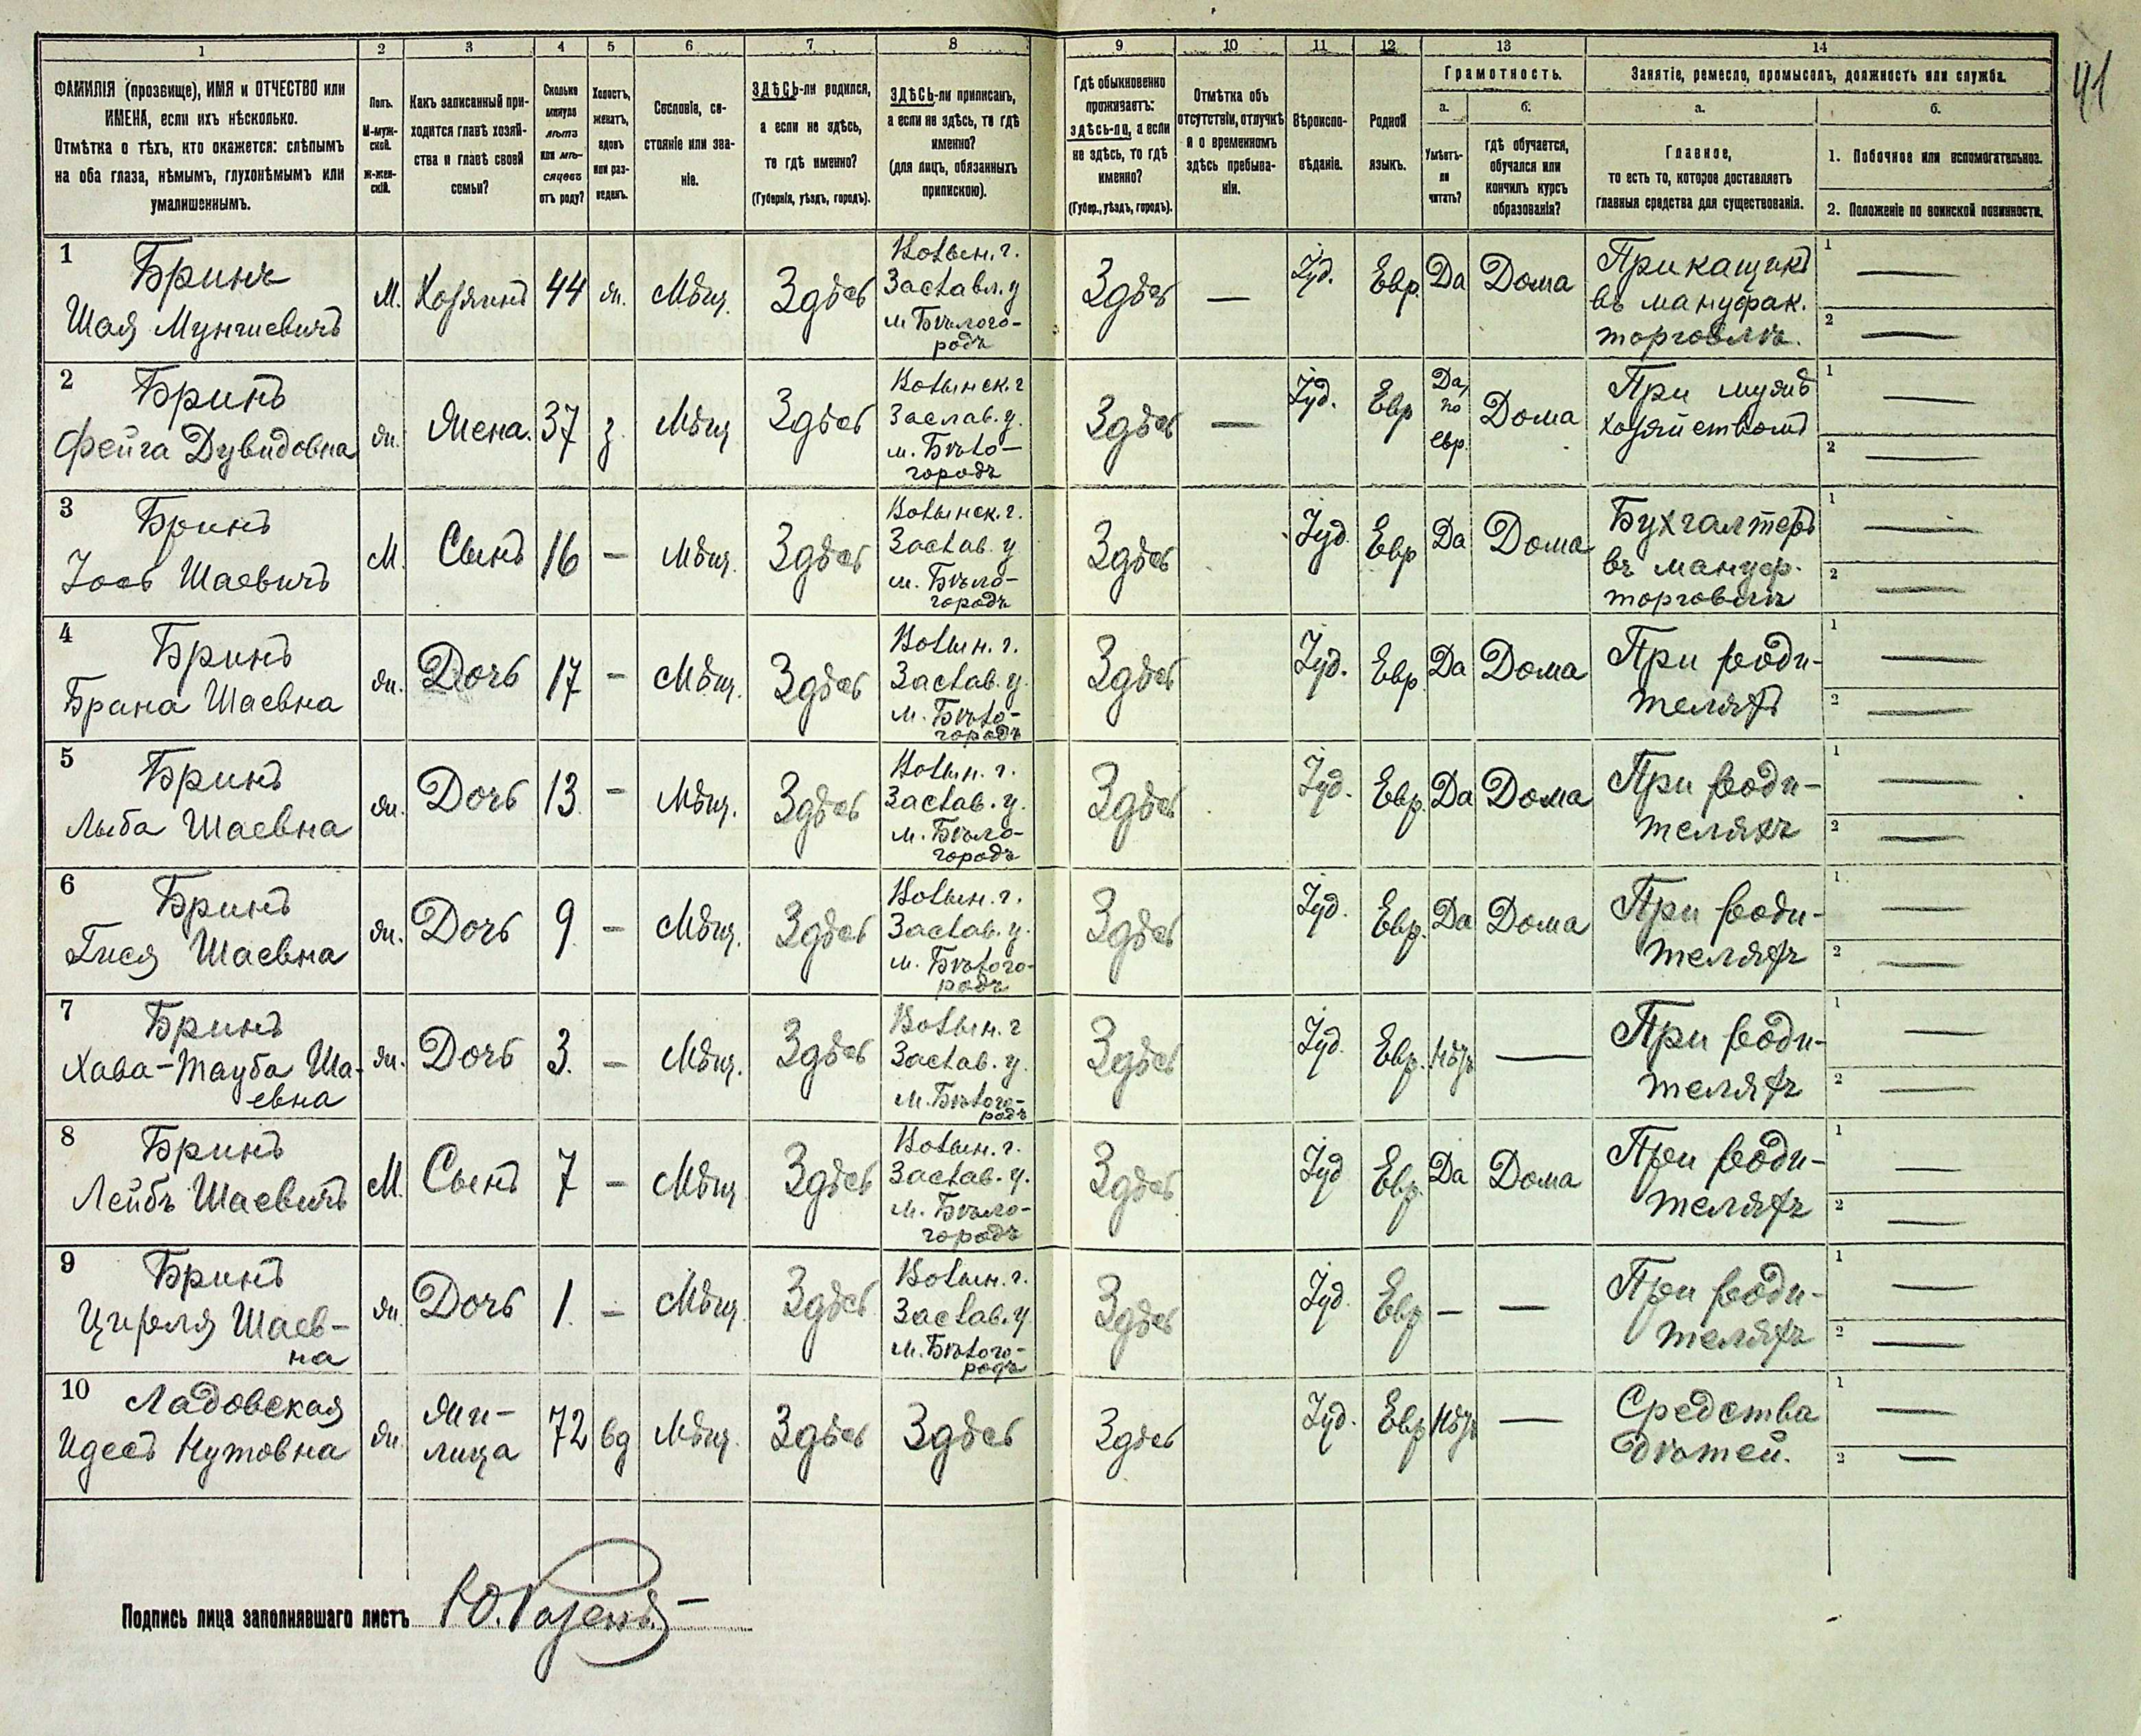 41
1 2 3 4 5 6 7 8 9 10 11 12 13 14
ФАМИЛІЯ (прозвище), ИМЯ и ОТЧЕСТВО или
ИМЕНА, если ихъ нѣсколько.
Отмѣтка о тѣхъ, кто окажется: слѣпымъ
на оба глаза, нѣмымъ, глухонѣмымъ или
умалишеннымъ.
Полъ.
М-муж-
ской.
Ж-жен-
скій.
Какъ записанный при-
ходится главѣ хозяй-
ства и главѣ своей
семьи?
Сколько
минуло
лѣтъ
или мѣ-
сяцевъ
отъ роду?
Холостъ,
женатъ,
вдовъ
или раз-
веденъ.
Сословіе, со-
стояніе или зва-
ніе.
ЗДѢСЬ-ли родился,
а если не здѣсь,
то гдѣ именно?
(Губернія, уѣздъ, городъ).
ЗДѢСЬ-ли приписанъ,
а если не здѣсь, то гдѣ
именно?
(для лицъ, обязанныхъ
припискою).
Гдѣ обыкновенно
проживаетъ:
здѣсь-ли, а если
не здѣсь, то гдѣ
именно?
(Губер., уѣздъ, городъ).
Отмѣтка объ
отсутствіи, отлучкѣ
и о временномъ
здѣсь пребыва-
ніи.
Вѣроиспо-
вѣданіе.
Родной
языкъ.
Грамотность.
а. б.
Умѣетъ-
ли
читать?
гдѣ обучается,
обучался или
кончилъ курсъ
образованія?
Занятіе, ремесло, промыселъ, должность или служба.
а. б.
Главное,
то есть то, которое доставляетъ
главныя средства для существованія.
1. Побочное или вспомогательное.
2. Положеніе по воинской повинности.
1
Бринъ
Шая Мунишевичъ
М. Хозяинъ 44 ж. Мѣщ. Здѣсь
Волын. г.
Заславл. у
м. Бѣлого-
родъ
Здѣсь — Іуд. Евр. Да Дома
Прикащикъ
въ мануфак.
торговлѣ.
1 —
2 —
2
Бринъ
Фейга Дувидовна
ж. Жена. 37 з. Мѣщ Здѣсь
Волынск. г
Заслав. у.
м. Бѣло-
городъ
Здѣсь — Іуд. Евр
Да,
по
евр.
Дома
При мужѣ
хозяйствомъ
1 —
2 —
3
Бринъ
Іось Шаевичъ
М. Сынъ 16 — Мѣщ. Здѣсь
Волынск. г.
Заслав. у
м. Бѣло-
городъ
Здѣсь Іуд Евр Да Дома
Бухгалтеръ
въ мануф.
торговли
1 —
2 —
4
Бринъ
Брана Шаевна
ж. Дочь 17 — Мѣщ. Здѣсь
Волын. г.
Заслав. у.
м. Бѣло-
городъ
Здѣсь Іуд. Евр. Да Дома
При роди-
теляхъ
1 —
2 —
5
Бринъ
Лыба Шаевна
ж. Дочь 13 — Мѣщ. Здѣсь
Волын. г.
Заслав. у.
м. Бѣло-
городъ
Здѣсь Іуд. Евр. Да Дома
При роди-
теляхъ
1 —
2 —
6
Бринъ
Гися Шаевна
ж. Дочь 9 — Мѣщ. Здѣсь
Волын. г.
Заслав. у.
м. Бѣлого-
родъ
Здѣсь Іуд. Евр. Да Дома
При роди-
теляхъ
1 —
2 —
7
Бринъ
Хава-Тауба Ша-
евна
ж. Дочь 3. — Мѣщ. Здѣсь
Волын. г
Заслав. у.
м. Бѣлого-
родъ
Здѣсь Іуд. Евр. Нѣтъ —
При роди-
теляхъ
1 —
2 —
8
Бринъ
Лейбъ Шаевичъ
М. Сынъ 7 — Мѣщ Здѣсь
Волын. г.
Заслав. у.
м. Бѣло-
городъ
Здѣсь Іуд Евр. Да Дома
При роди-
теляхъ
1 —
2 —
9
Бринъ
Циреля Шаев-
на
ж. Дочь 1. — Мѣщ. Здѣсь
Волын. г.
Заслав. у
м. Бѣлого-
родъ
Здѣсь Іуд. Евр — —
При роди-
теляхъ
1 —
2 —
10
Ладовская
Идесъ Нутовна
ж.
жи-
лица
72 вд Мѣщ. Здѣсь Здѣсь Здѣсь Іуд. Евр Нѣтъ —
Средства
дѣтей.
1 —
2 —
Подпись лица заполнявшаго листъ Ю. Розенъ